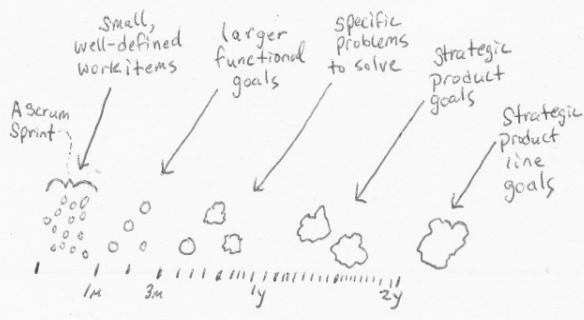 Small,
well-defined
work items
larger
functional
goals
specific
problems
to solve
Strategic
product
goals
Strategic
product
line
goals
A scrum
Sprint
1M
3M
1y
2y